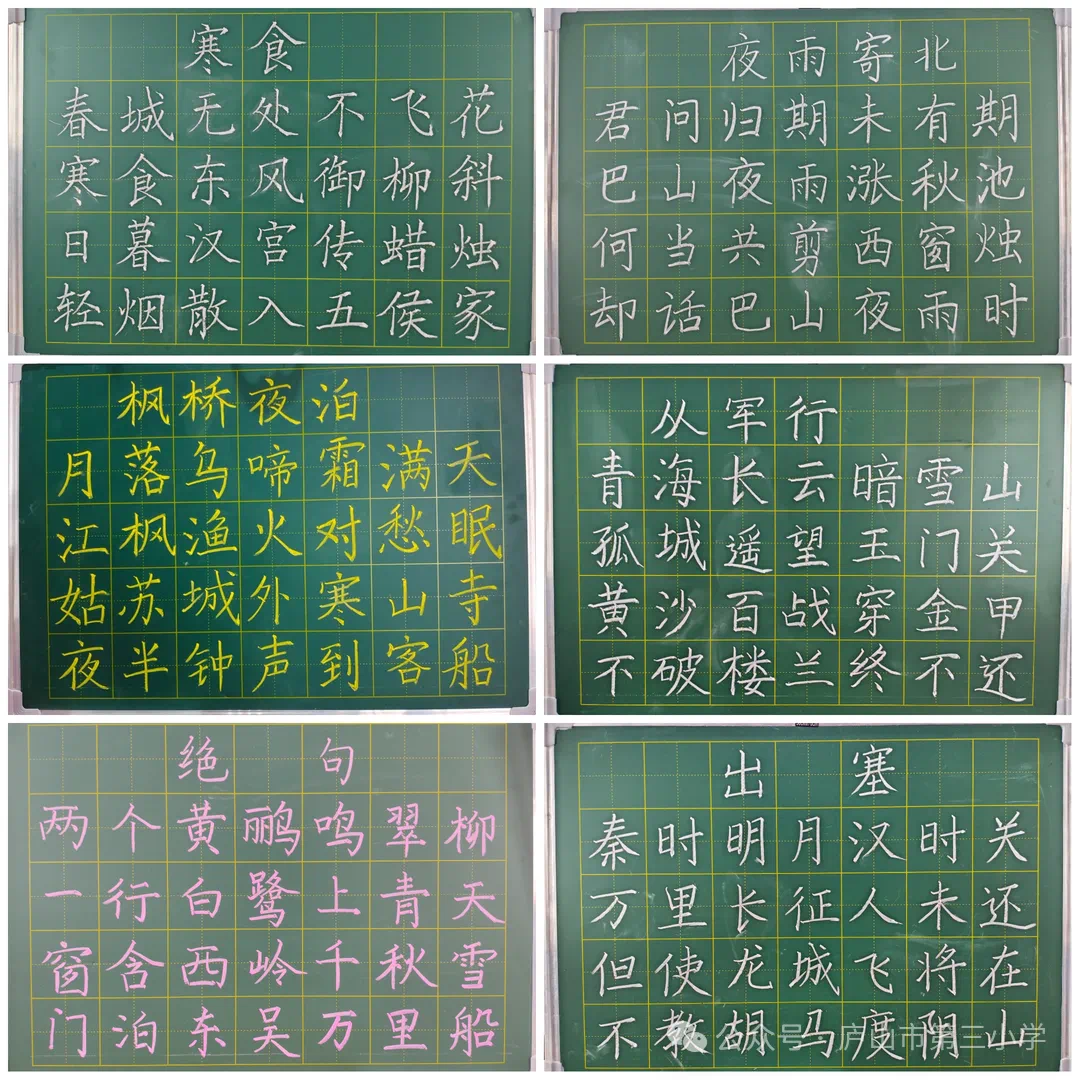 寒食
春城无处不飞花
寒食东风御柳斜
日暮汉宫传蜡烛
轻烟散入五侯家
夜雨寄北
君问归期未有期
巴山夜雨涨秋池
何当共剪西窗烛
却话巴山夜雨时
枫桥夜泊
月落乌啼霜满天
江枫渔火对愁眠
姑苏城外寒山寺
夜半钟声到客船
从军行
青海长云暗雪山
孤城遥望玉门关
黄沙百战穿金甲
不破楼兰终不还
绝句
两个黄鹂鸣翠柳
一行白鹭上青天
窗含西岭千秋雪
门泊东吴万里船
出塞
秦时明月汉时关
万里长征人未还
但使龙城飞将在
不教胡马度阴山
公众号·庐山市第三小学